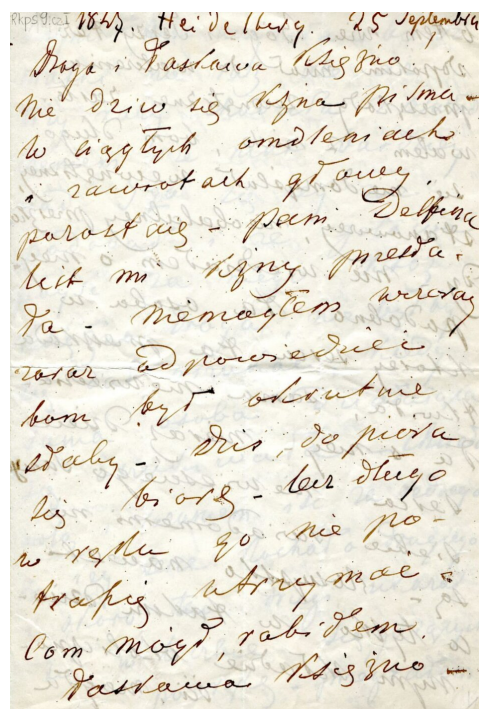 Rkps 9; cz I
1847. Heidelberg. 25 Septembra
Droga i Łaskawa Księżno!
Nie dziw się Xżna pisma -
w ciągłych omdleniach
i zawrotach głowy
pozostaję - pani Delfina
list mi Xżny przesła-
ła - niemogłem wczoraj
zaraz odpowiedzieć
bom był okrutnie
słaby - dziś, do pióra
się biorę - lecz długo
w ręku go nie po-
trafię utrzymać -
Com mógł, robiłem.
Łaskawa Księżno -